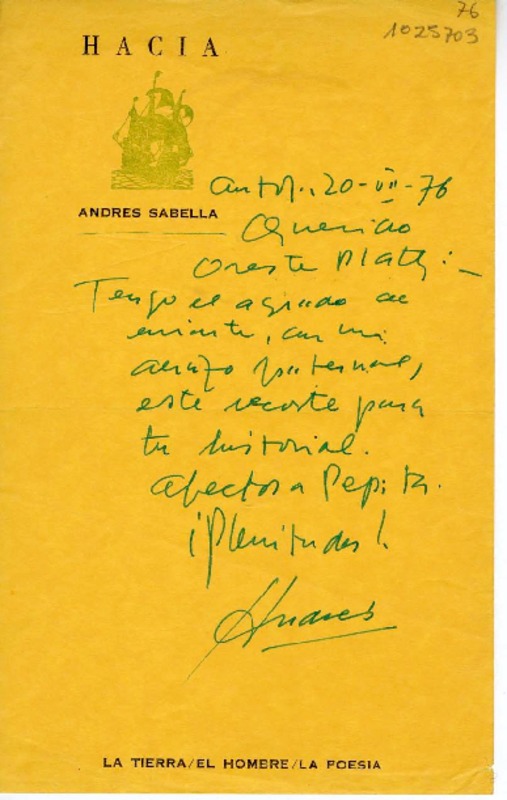 76
1025703
HACIA
ANDRES SABELLA
Antof., 20-VII-76
Querido
Oreste Plath:
Tengo el agrado de
enviarte, con mi
abrazo fraternal,
este recorte para
tu historial.
Afectos a Pepita.
¡Plenitudes!
Andrés
LA TIERRA/EL HOMBRE/LA POESIA